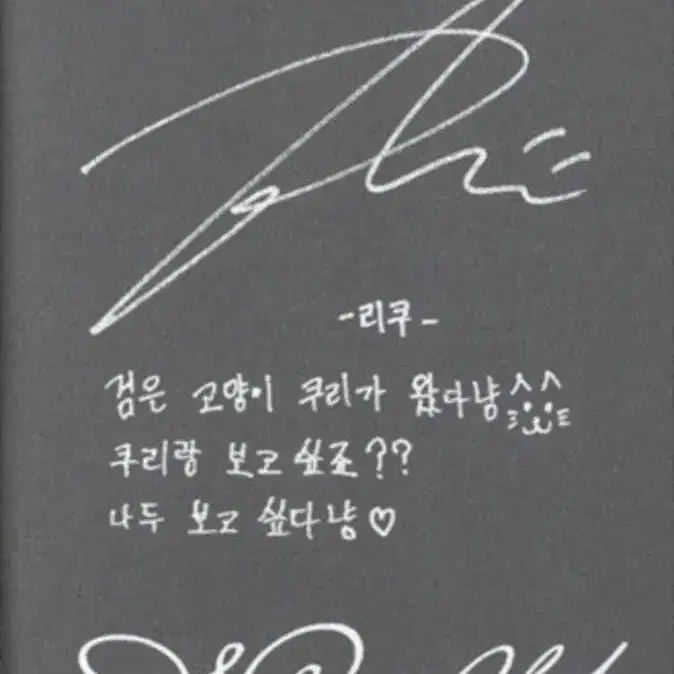 -리쿠-
검은 고양이 쿠리가 왔다냥
쿠리랑 보고 싶죠??
나두 보고 싶다냥♡